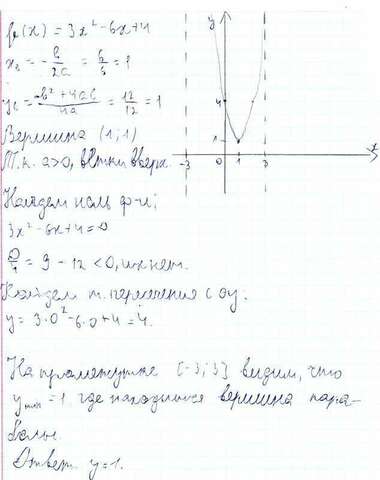 f(x) = 3x² - 6x + 4
x₀ = -b/2a = 6/6 = 1
y₀ = -b² + 4ac/4a = 12/12 = 1
Вершина (1; 1)
Т.к. a>0, ветки вверх.
Найдем ноль ф-и;
3x² - 6x + 4 = 0
D/4 = 9 - 12 < 0, их нет.
Найдем т. пересечения с oy:
y = 3·0² - 6·0 + 4 = 4.
На промежутке [-3; 3] видим, что
y min = 1 где находится вершина пара-
болы.
Ответ y = 1.
y
4
1
-3 0 1 3 x